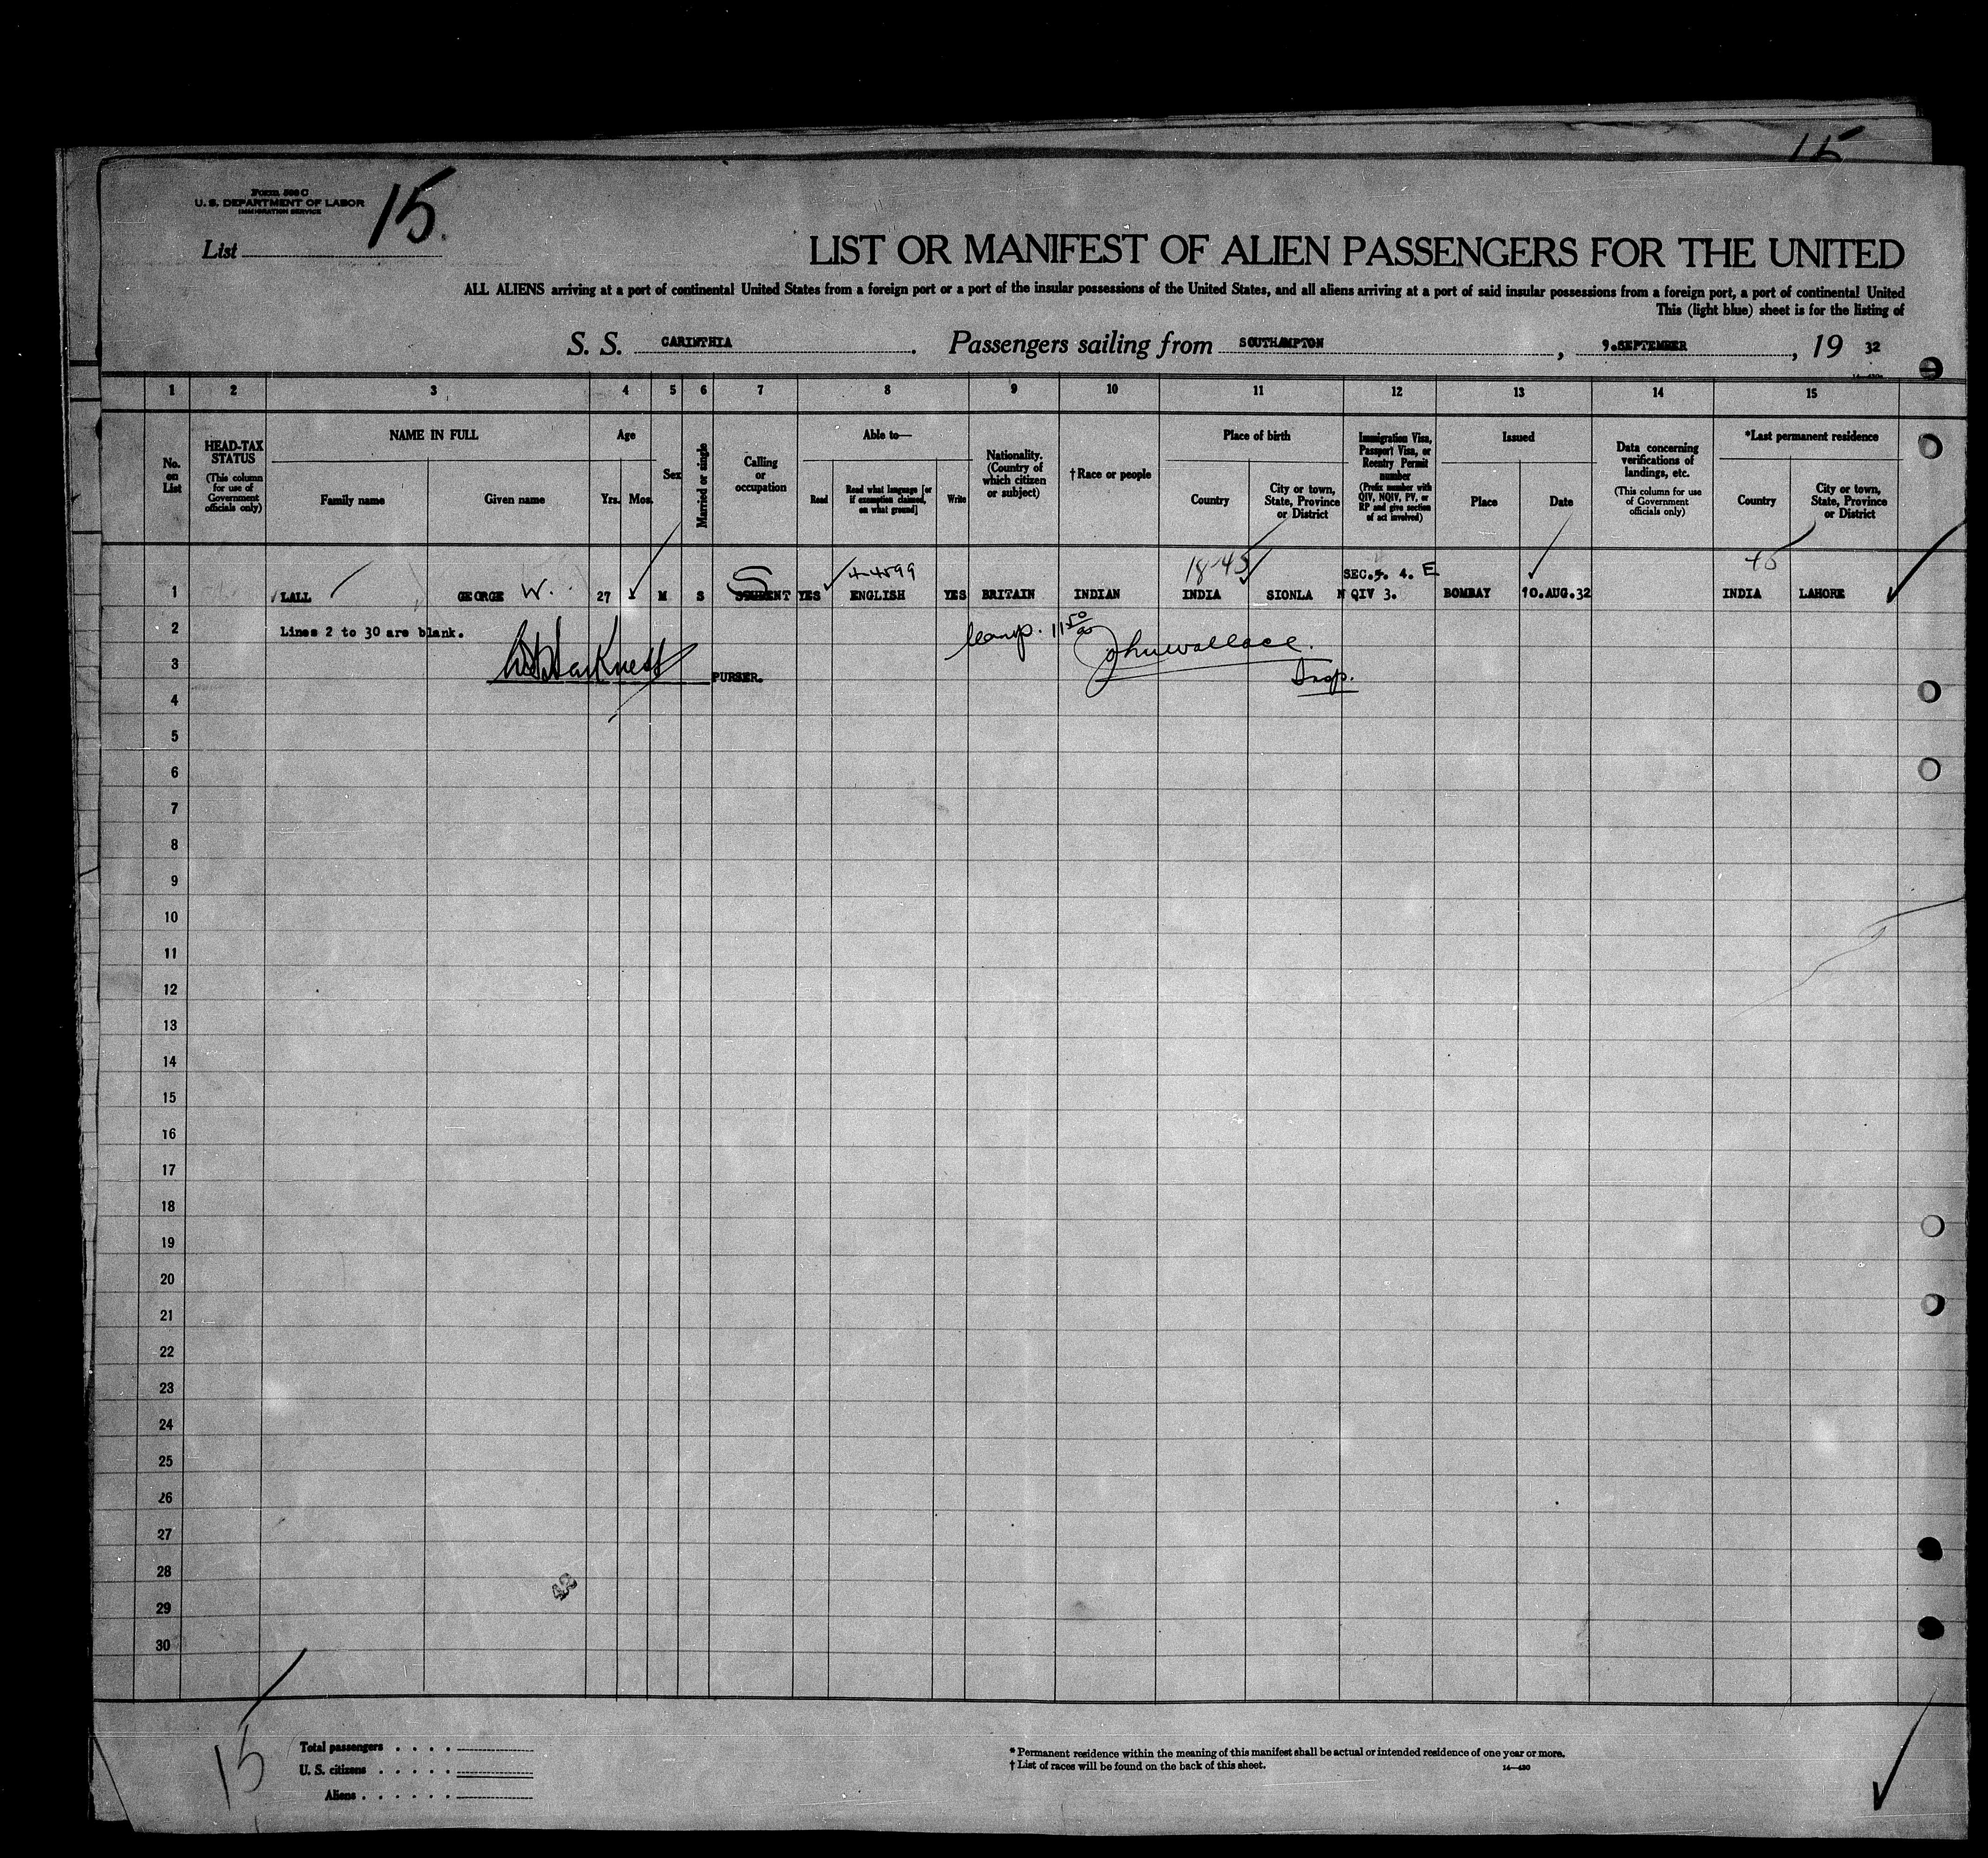 15
Form 500 C
U. S. DEPARTMENT OF LABOR
IMMIGRATION SERVICE
15.
List
LIST OR MANIFEST OF ALIEN PASSENGERS FOR THE UNITED
ALL ALIENS arriving at a port of continental United States from a foreign port or a port of the insular possessions of the United States, and all aliens arriving at a port of said insular possessions from a foreign port, a port of continental United
This (light blue) sheet is for the listing of
S. S. CARINTHIA. Passengers sailing from SOUTHAMPTON, 9.SEPTEMBER, 19 32
1 2 3 4 5 6 7 8 9 10 11 12 13 14 15
No. on List
HEAD-TAX STATUS
(This column for use of Government officials only)
NAME IN FULL
Family name
Given name
Age
Yrs. Mos.
Sex
Married or single
Calling or occupation
Able to—
Read
Read what language [or if exemption claimed, on what ground]
Write
Nationality. (Country of which citizen or subject)
†Race or people
Place of birth
Country
City or town, State, Province or District
Immigration Visa, Passport Visa, or Reentry Permit number
(Prefix number with QIV, NQIV, PV, or RP and give section of act involved)
Issued
Place
Date
Data concerning verifications of landings, etc.
(This column for use of Government officials only)
*Last permanent residence
Country
City or town, State, Province or District
4-4599 18-45 SEC.5. 4. E 45
1 LALL GEORGE W. 27 M S STUDENT YES ENGLISH YES BRITAIN INDIAN INDIA SIONLA N QIV 3. BOMBAY 10.AUG.32 INDIA LAHORE
2 Lines 2 to 30 are blank.
John Wallace.
3 Harkness PURSER. Insp.
4
5
6
7
8
9
10
11
12
13
14
15
16
17
18
19
20
21
22
23
24
25
26
27
28
29
30
42
15
Total passengers . . . .
U. S. citizens . . . . .
Aliens . . . . . .
* Permanent residence within the meaning of this manifest shall be actual or intended residence of one year or more.
† List of races will be found on the back of this sheet.
14—430